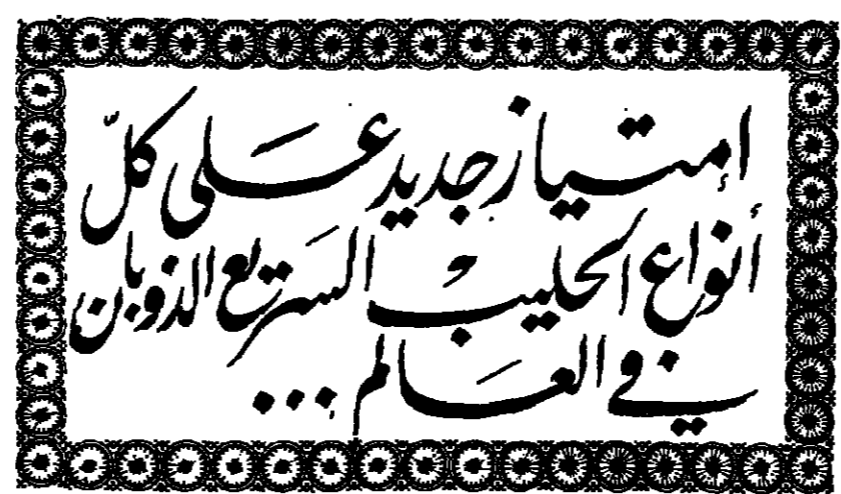 إمتياز جديد على كلّ
أنواع الحليب السريع الذوبان
في العالم ...